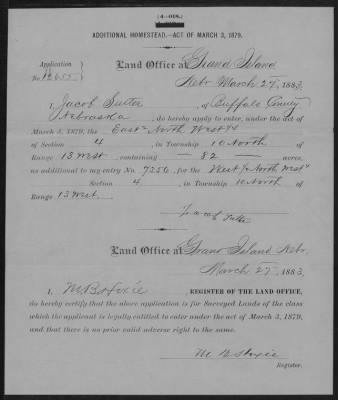 (4—018.)
ADDITIONAL HOMESTEAD.—ACT OF MARCH 3, 1879.
Application
No.
Land Office at Grand Island
Nebr March 27, 1883.
I, Jacob Sutter, of Buffalo County
Nebraska, do hereby apply to enter, under the act of
March 3, 1879, the East ½ North West ¼
of Section 4, in Township 10 North
Range 13 West, containing — 82 — acres,
as additional to my entry No. 7256, for the West ½ North West ¼
Section 4, in Township 10 North of
Range 13 West.
Jacob Sutter
Land Office at Grand Island Nebr.
March 27, 1883.
I, M B Hoxie, REGISTER OF THE LAND OFFICE,
do hereby certify that the above application is for Surveyed Lands of the class
which the applicant is legally entitled to enter under the act of March 3, 1879,
and that there is no prior valid adverse right to the same.
M B Hoxie
Register.